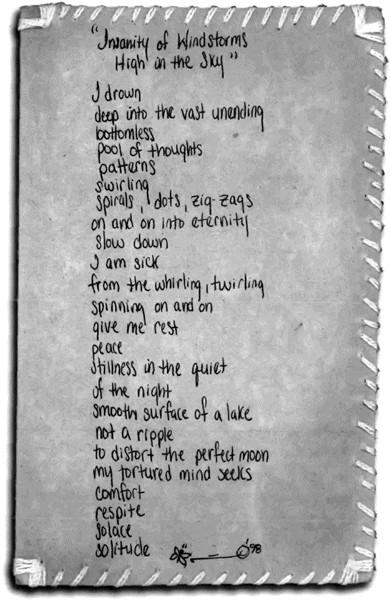 "Insanity of Windstorms
High in the Sky"
I drown
deep into the vast unending
bottomless
pool of thoughts
patterns
swirling
spirals, dots, zig-zags
on and on into eternity
slow down
I am sick
from the whirling, twirling
spinning on and on
give me rest
peace
stillness in the quiet
of the night
smooth surface of a lake
not a ripple
to distort the perfect moon
my tortured mind seeks
comfort
respite
solace
solitude '98